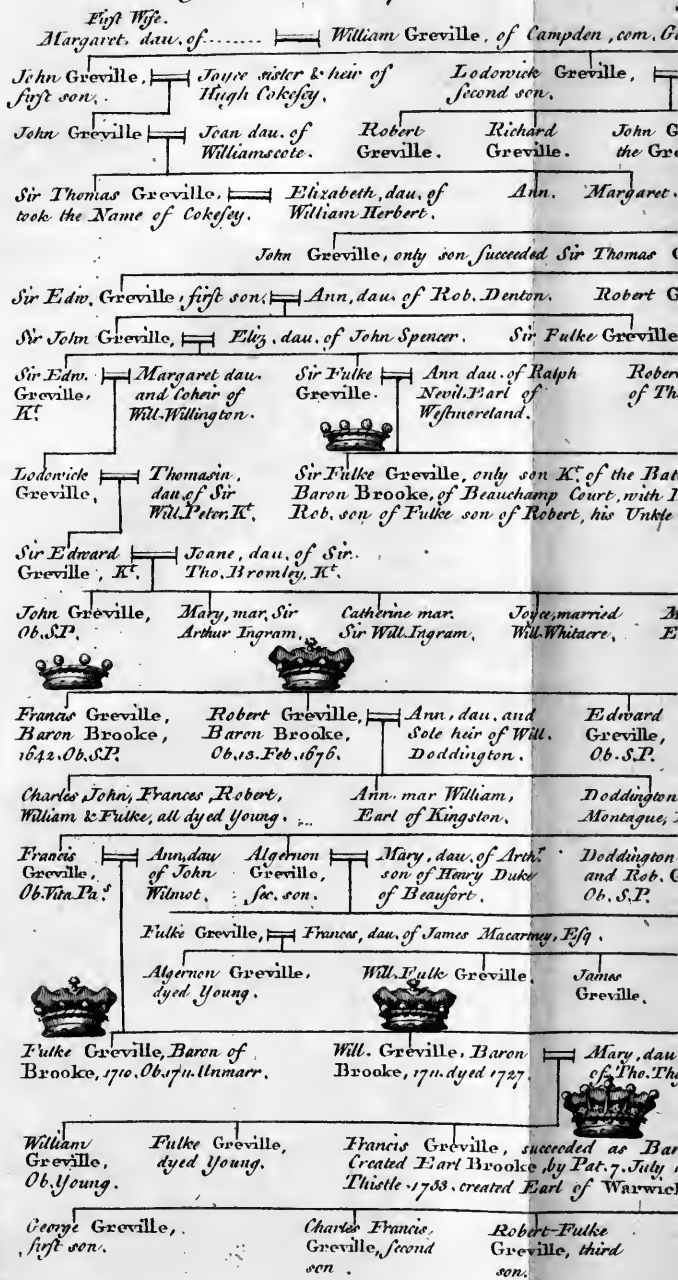 First Wife.
Margaret, dau. of........ William Greville, of Campden, com.
John Greville, first son.
Joyce sister & heir of Hugh Cokesey.
Lodowick Greville, second son.
John Greville
Jean dau. of Williamscote.
Robert Greville.
Richard Greville.
John G
the Gre
Sir Thomas Greville, took the Name of Cokesey.
Elizabeth, dau. of William Herbert.
Ann. Margaret.
John Greville, only son succeeded Sir Thomas
Sir Edw. Greville, first son. Ann, dau. of Rob. Denton. Robert G
Sir John Greville, Eliz. dau. of John Spencer. Sir Fulke Greville
Sir Edw. Greville, Kt.
Margaret dau. and Coheir of Will. Willington.
Sir Fulke Greville.
Ann dau. of Ralph Nevil. Earl of Westmoreland.
Rober
of Th
Lodowick Greville,
Thomasin, dau. of Sir Will. Peter, Kt.
Sir Fulke Greville, only son Kt. of the Bat
Baron Brooke, of Beauchamp Court, with
Rob. son of Fulke son of Robert, his Unkle
Sir Edward Greville, Kt.
Joane, dau. of Sir. Tho. Bromley, Kt.
John Greville, Ob. S.P.
Mary, mar. Sir Arthur Ingram.
Catherine mar. Sir Will. Ingram.
Joyce, married Will. Whitacre.
Francis Greville, Baron Brooke, 1642. Ob. S.P.
Robert Greville, Baron Brooke, Ob. 13. Feb. 1676.
Ann, dau. and Sole heir of Will. Doddington.
Edward Greville, Ob. S.P.
Charles, John, Frances, Robert,
William & Fulke, all dyed Young.
Ann. mar William, Earl of Kingston.
Doddington
Montague,
Francis Greville, Ob. Vita Pa.s
Ann, dau of John Wilmot.
Algernon Greville, sec. son.
Mary, dau. of Arth.r son of Henry Duke of Beaufort.
Doddington
and Rob. G
Ob. S.P.
Fulke Greville, Frances, dau. of James Macartney, Esq.
Algernon Greville, dyed Young.
Will. Fulk Greville.
James Greville,
Fulke Greville, Baron of Brooke, 1710. Ob. 1711. Unmarr.
Will. Greville. Baron Brooke, 1711. dyed 1727.
Mary, dau
of. Tho. Th
William Greville, Ob. Young.
Fulke Greville, dyed Young.
Francis Greville, succeeded as Bar
Created Earl Brooke, by Pat. 7. July
Thistle. 1753. created Earl of Warwic
George Greville, first son.
Charles Francis, Greville, second son.
Robert-Fulke Greville, third son.